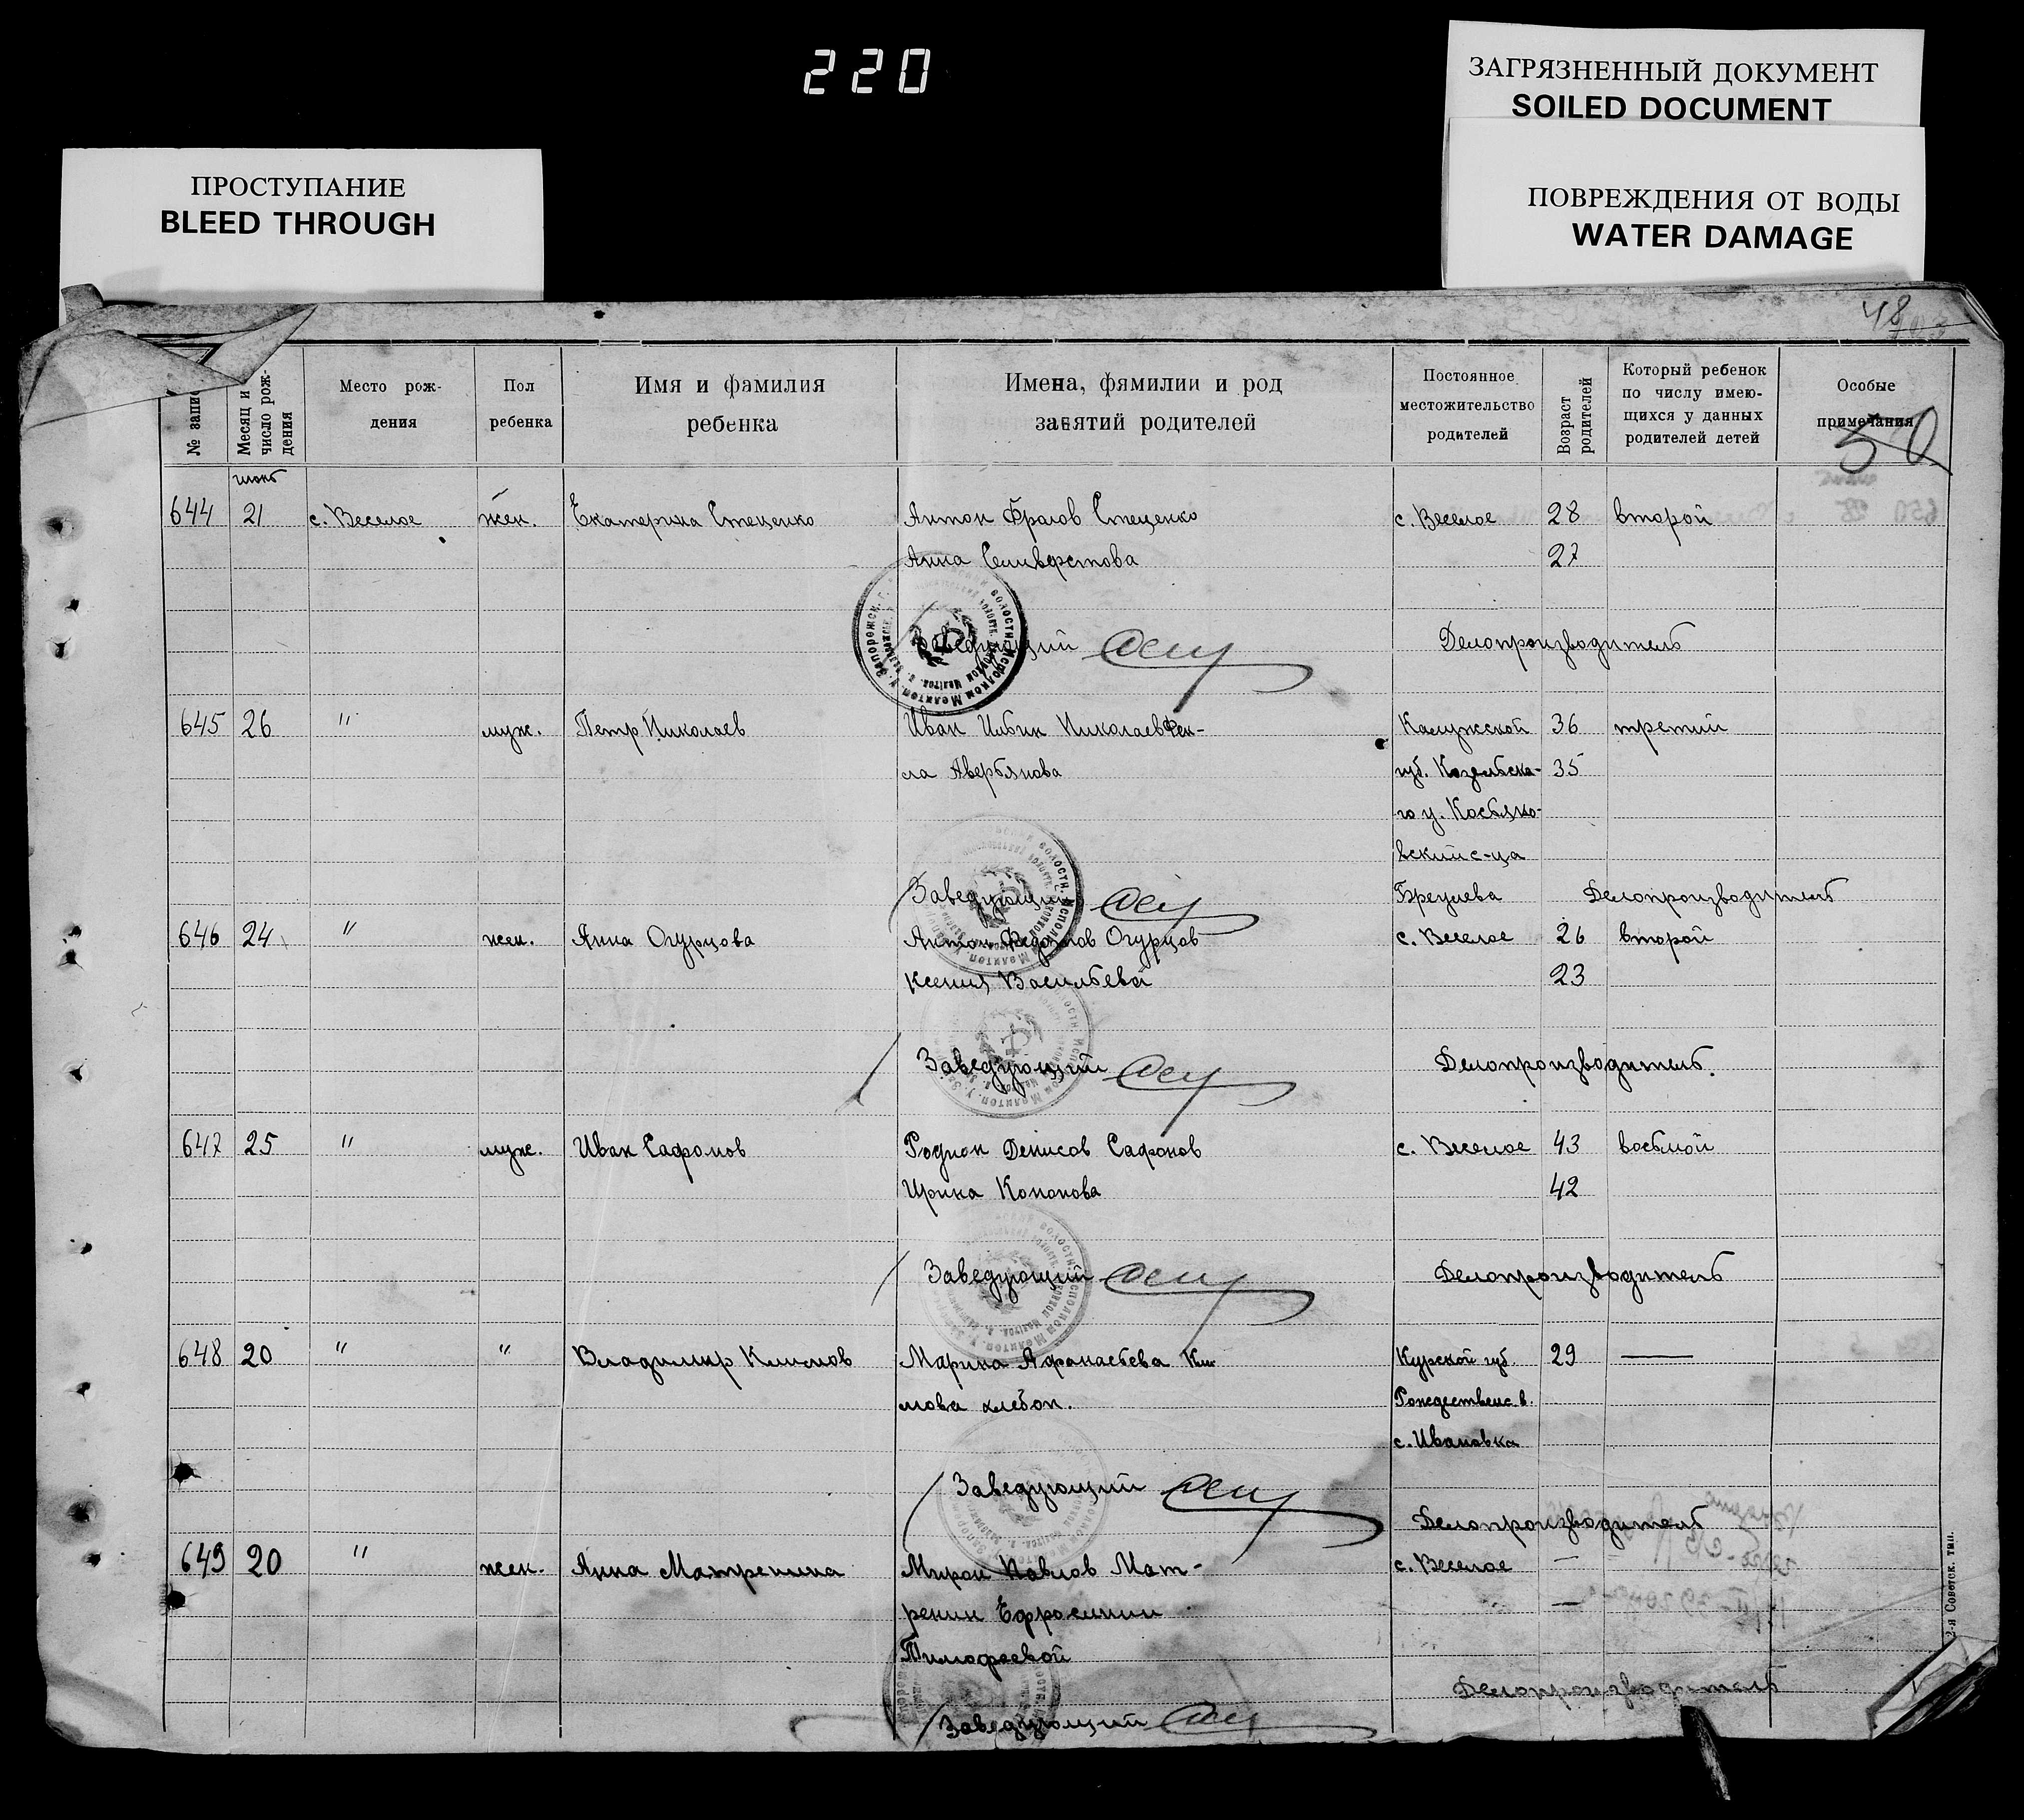 220
ЗАГРЯЗНЕННЫЙ ДОКУМЕНТ
SOILED DOCUMENT
ПОВРЕЖДЕНИЯ ОТ ВОДЫ
WATER DAMAGE
ПРОСТУПАНИЕ
BLEED THROUGH
48
№ запис
Месяц и число рож-дения
Место рож-
дения
Пол
ребенка
Имя и фамилия
ребенка
Имена, фямилии и род
занятий родителей
Постоянное
местожительство
родителей
Возраст
родителей
Который ребенок
по числу имею-
щихся у данных
родителей детей
Особые
примечания
50
644 21 с. Веселое жен. Екатерина Стеценко Антон Фролов Стеценко с. Веселое 28 второй
Анна Селиверстова 27
Заведующий Делопроизводитель
645 26 " муж. Петр Николаев Иван Ильин Николаев Фек- Калужской 36 третий
ла Аверьянова губ. Козельска- 35
го у.
Заведующий Делопроизводитель
646 24 " жен. Анна Огурцова Антон Федотов Огурцов с. Веселое 26 второй
Ксения Васильева 23
Заведующий Делопроизводитель.
647 25 " муж. Иван Сафонов Родион Денисов Сафонов с. Веселое 43 восьмой
Ирина Кононова 42
Заведующий Делопроизводитель
648 20 " " Владимир Климов Марина Афанасьева Кли Курской губ. 29 —
мова хлебоп. Рождественс в.
с. Ивановка
Заведующий
Делопроизводитель
649 20 " жен. Анна Матренина Мирон Павлов Мат- с. Веселое —
ренин Ефросинии —
Тимофеевой
Делопроизводитель
Заведующий
2-я Советск. тип.